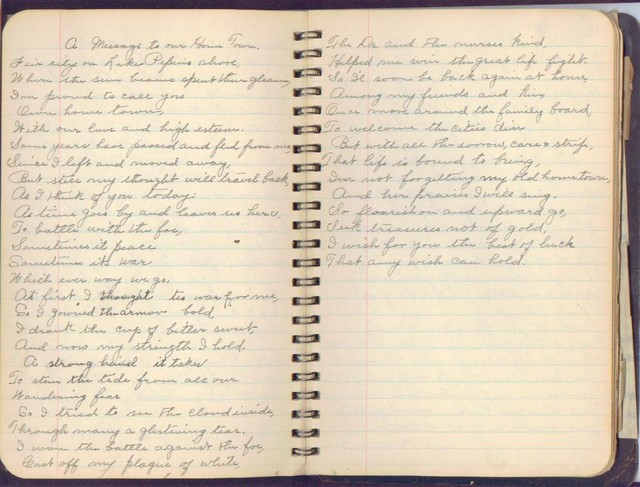 A Message to our Home Town.
Fair city on Lake Pepins shore,
Where the sun beams spent their gleam,
I'm proud to call you
Our home town,
With our love and high esteem.
Some years have passed and fled from me,
Since I left and moved away,
But still my thought will travel back,
As I think of you today.
As time goes by and leaves us here,
To battle with the foe,
Sometimes it peace
Sometimes its war
Which ever way we go.
At first I thought tis war for me,
So I the armor bold,
I drank the cup of bitter sweet,
And now my strength I hold,
A strong hand it takes
To stem the tide from all our
Wandering fear
So I tried to see the cloud inside,
Through many a glistening tear.
I won the battle against the foe,
Cast off my plague of white,
The Dr. and the nurses kind,
Helped me win the great life fight.
So I'l soon be back again at home,
Among my friends and kin,
Once more around the family board,
To welcome the cities din
But with all the sorrow, care & strife,
That life is bound to bring,
I'm not forgetting my old home town,
And her praises I will sing.
So flourish on and upward go,
Seek treasures not of gold,
I wish for you the best of luck
That any wish can hold.